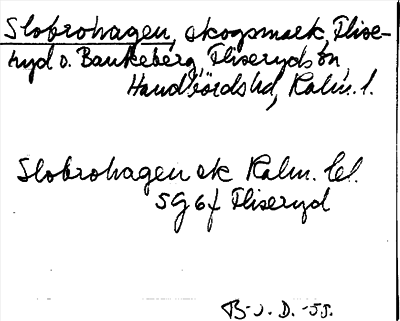 Slobrohagen, skogsmark, Flise-
ryd o. Bankeberg, Fliseryds sn
Handbörds hd, Kalm. l.
Slobrohagen sk Kalm. bl.
5G6f Fliseryd
B-J. D. -55.